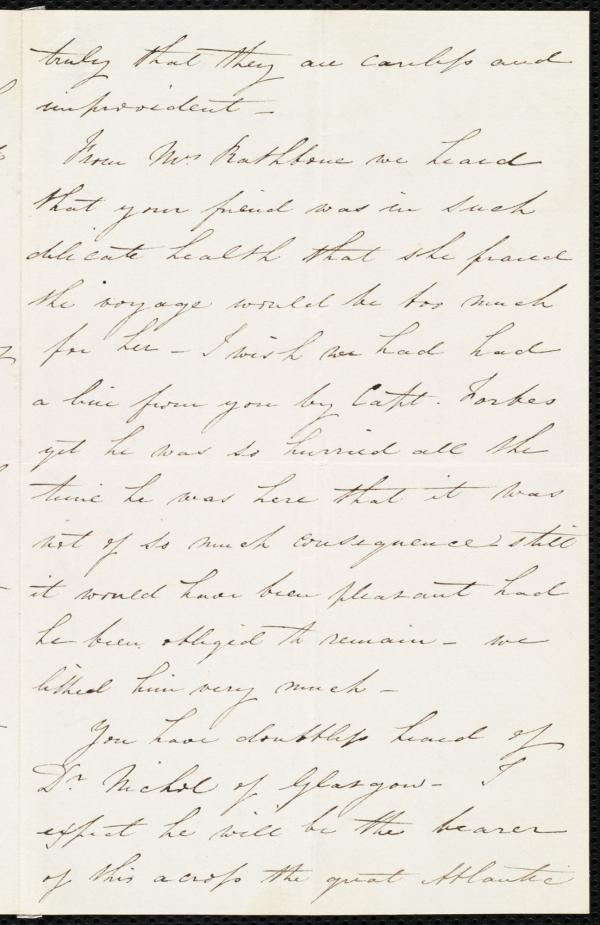 truly that they are careless and
improvident -
From Mrs Rathbone we heard
that your friend was in such
delicate health that she feared
the voyage would be too much
for her - I wish we had had
a line from you by Capt. Forbes
yet he was so hurried all the
time he was here that it was
not of so much consequence - still
it would have been pleasant had
he been obliged to remain - we
liked him very much -
You have doubtless heard of
Dr Nichol of Glasgow - I
expect he will be the bearer
of this across the great Atlantic